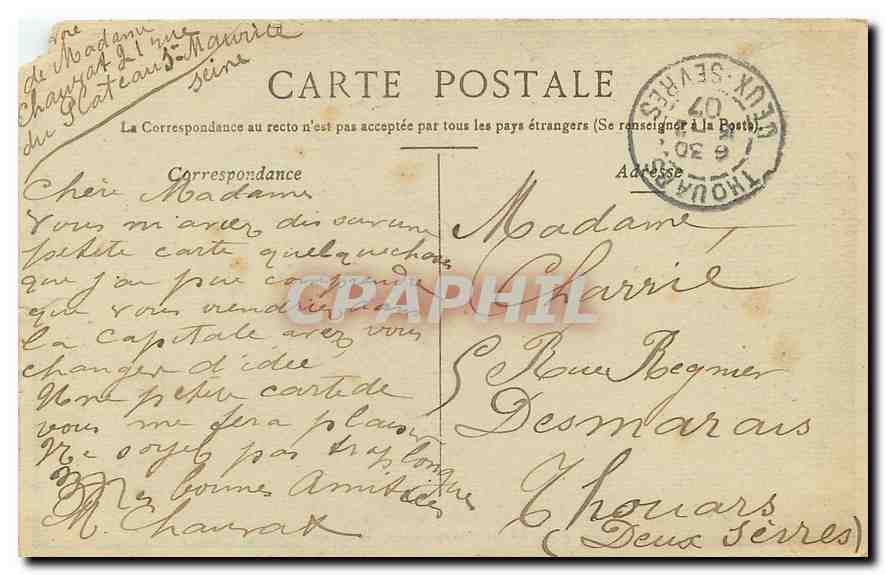 de Madame
Chauvat 21 rue
du Plateau St Maurice
Seine
CARTE POSTALE
La Correspondance au recto n'est pas acceptée par tous les pays étrangers (Se renseigner à la Poste).
Correspondance
Adresse
THOUARS
DEUX-SÈVRES
6 30
07
Chère Madame
vous m'avez dis sur une
petite carte quelquechose
que j'ai pue comprendre
que vous viendriez dans
la Capitale avez vous
changer d'idée
Une petite carte de
vous me fera plaisir
Ne soyez pas trop longue
Mes bonnes Amitiées
M. Chauvat
Madame
Charrié
5 Rue Regnier
Desmarais
Thouars
(Deux Sèvres)
CPAPHIL